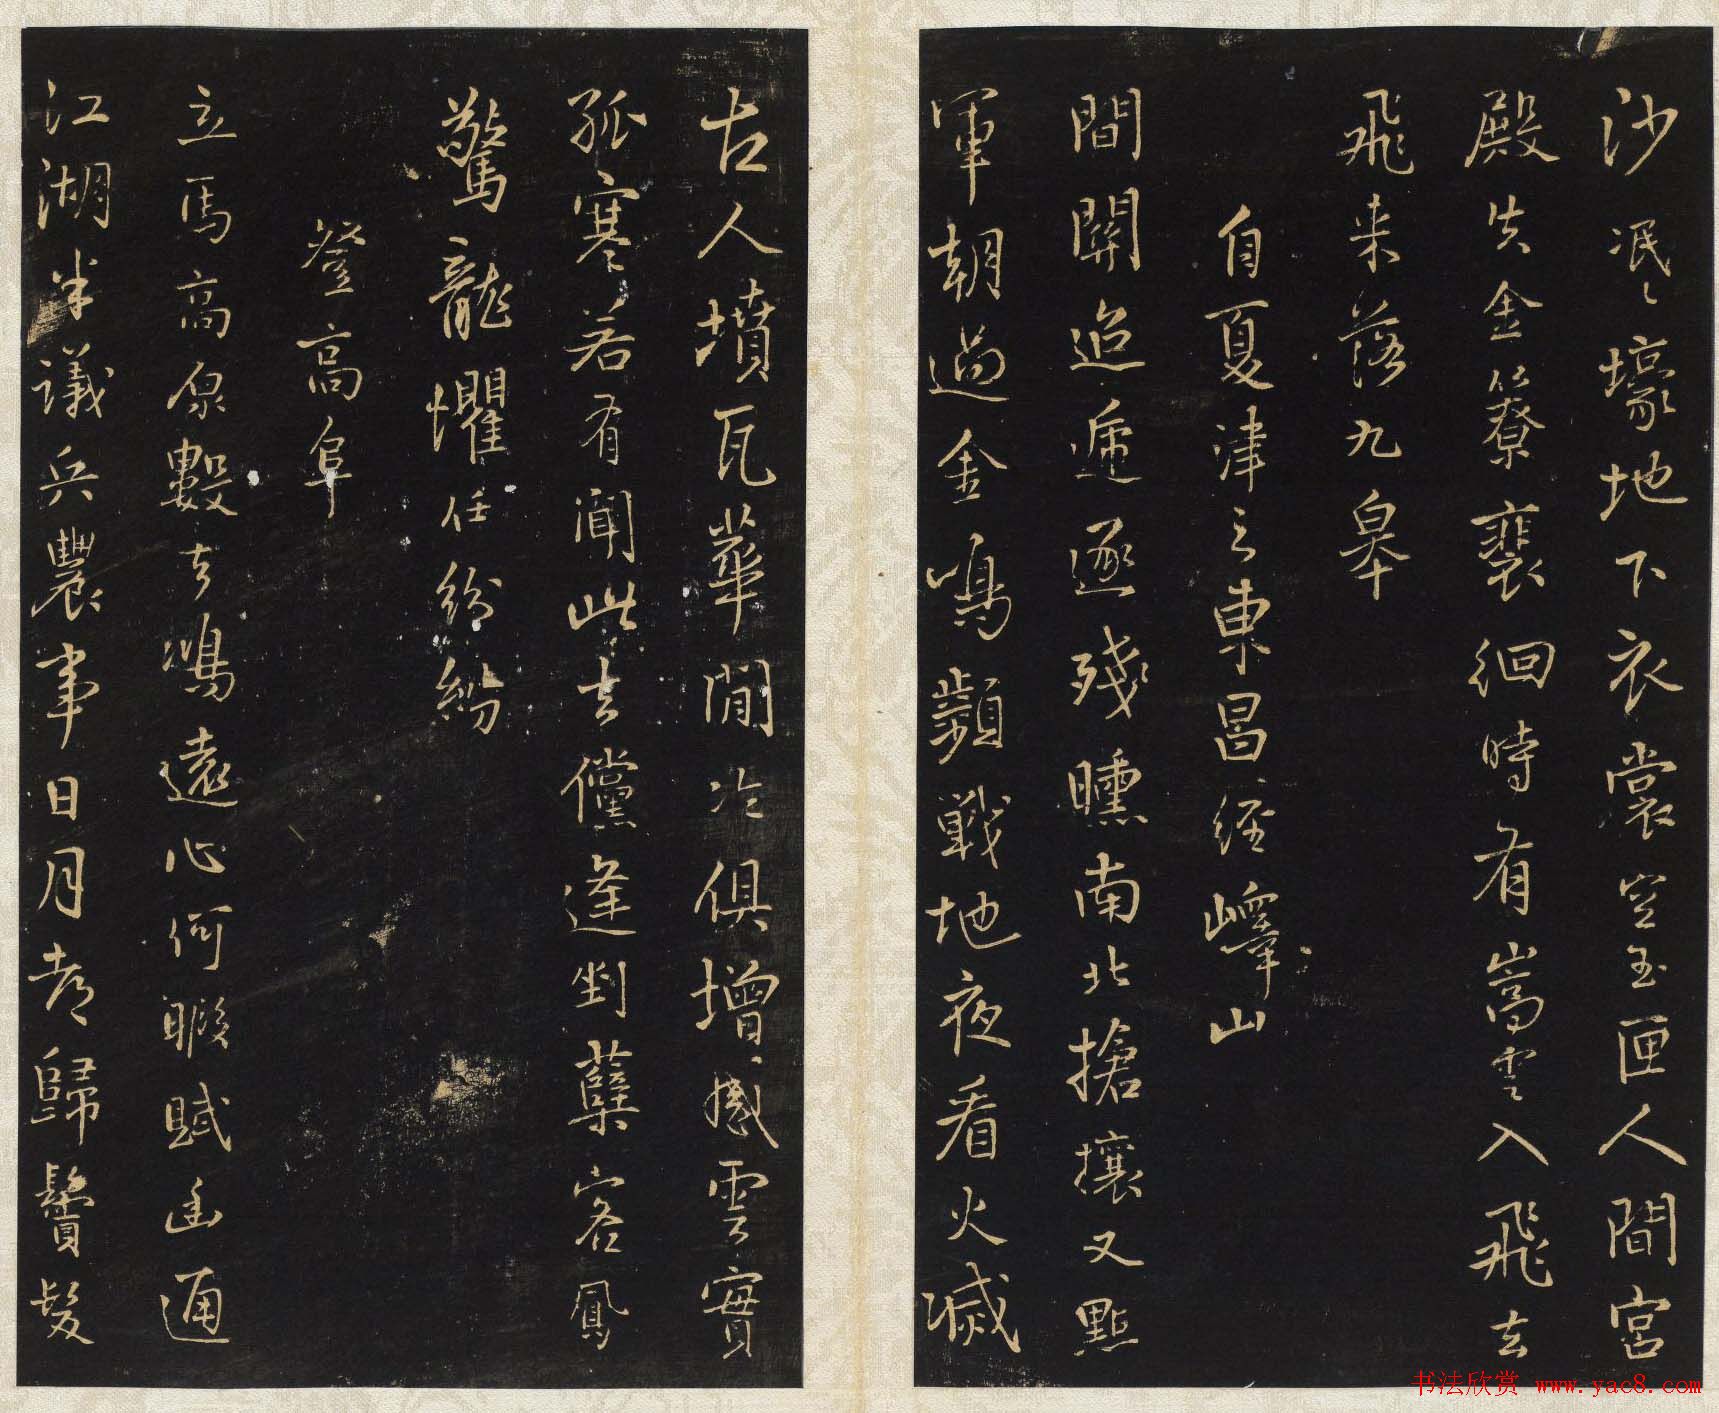 沙泯〻壕地下衣裳空玉匣人間宮
殿失金簝裴徊時有嵩雲入飛去
飛来落九皋
自夏津之東昌經嶧山
間關迢遞逐殘曛南北搶攘又點
軍朝過金鳴顰戰地夜看火滅
古人墳瓦華閒冷俱增感雲實
孤寒若有聞此去儻逢剉蘖客鳳
驚龍懼任紛紛
登高阜
立馬高原數去鴻遠心何暇賦幽通
江湖半議兵農事日月考歸鬢髮
书法欣赏 www.yac8.com